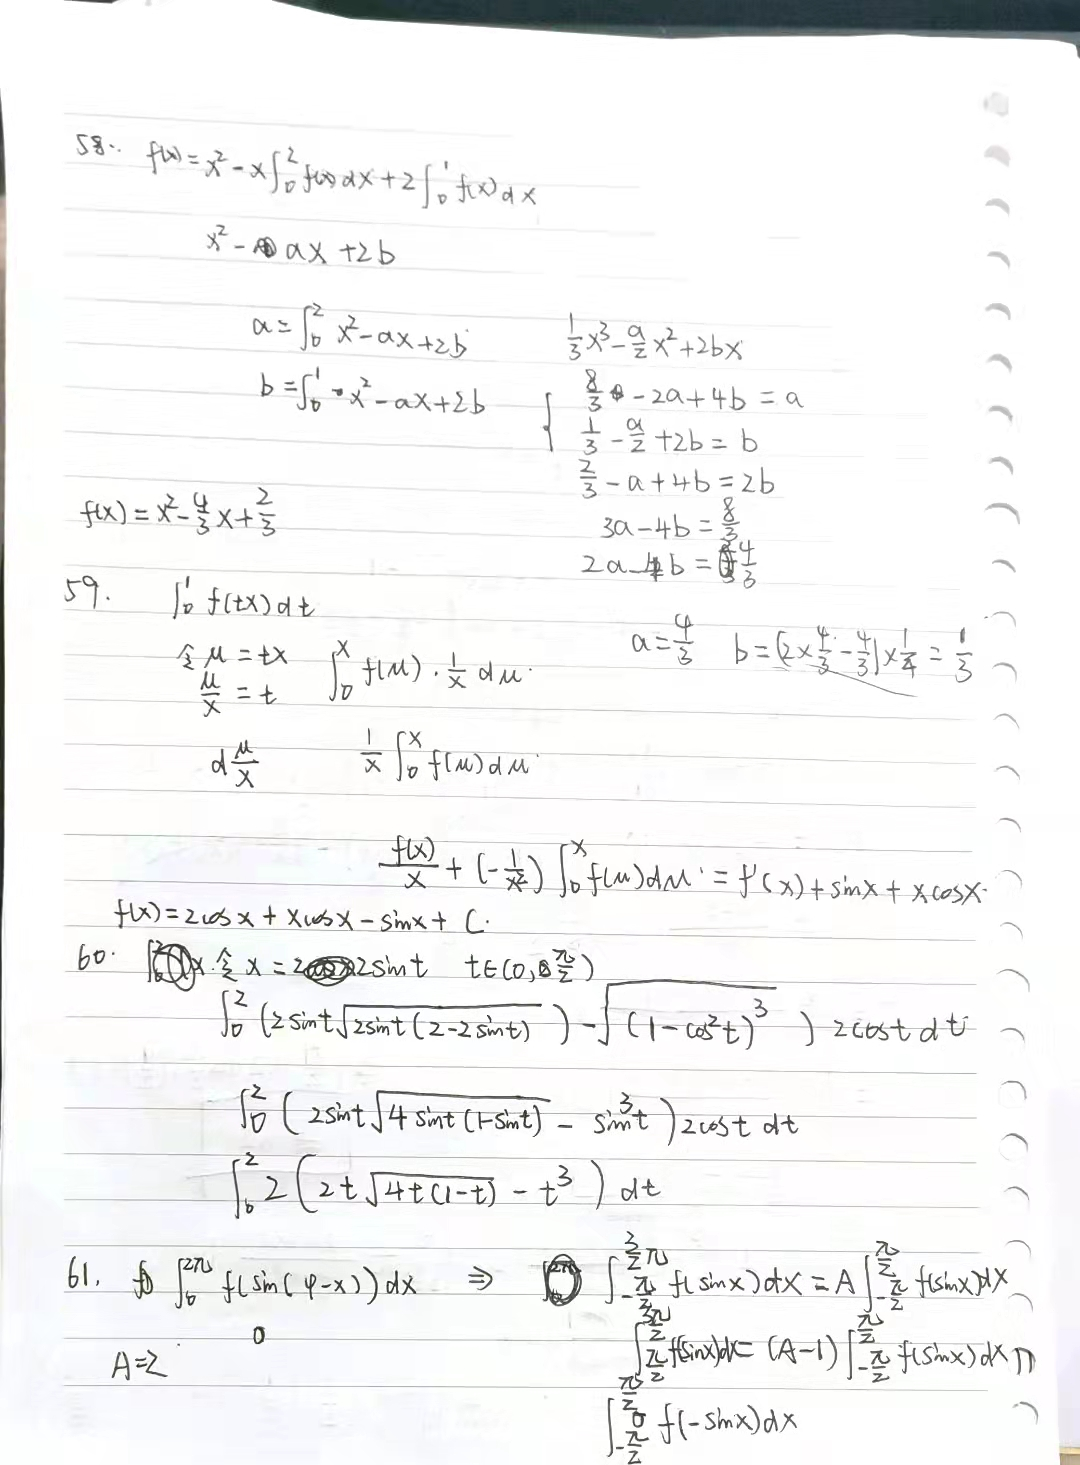 58. f(x)=x²-x∫₀²f(x)dx+2∫₀¹f(x)dx
x²-ax+2b
a=∫₀² x²-ax+2b
1/3x³-a/2x²+2bx
b=∫₀¹ x²-ax+2b
8/3-2a+4b=a
1/3-a/2+2b=b
2/3-a+4b=2b
f(x)=x²-4/3x+2/3
3a-4b=8/3
2a-4b=4/3
59. ∫₀¹f(tx)dt
a=4/3 b=(2×4/3-4/3)×1/4=1/3
令μ=tx ∫₀ˣf(μ)·1/x dμ
μ/x=t
d μ/x 1/x∫₀ˣf(μ)dμ
f(x)/x+(-1/x²)∫₀ˣf(μ)dμ=f'(x)+sinx+xcosx
f(x)=2cosx+xcosx-sinx+C.
60. 令x=2sint t∈(0,π/2)
∫₀²(2sint√(2sint(2-2sint))-√((1-cos²t)³))2costdt
∫₀²(2sint√(4sint(1-sint))-sin³t)2costdt
∫₀²2(2t√(4t(1-t))-t³)dt
61. ∫₀^{2π}f(sin(φ-x))dx ⇒ ∫_{-π/2}^{3/2π}f(sinx)dx=A∫_{-π/2}^{π/2}f(sinx)dx
0
∫_{π/2}^{3π/2}f(sinx)dx=(A-1)∫_{-π/2}^{π/2}f(sinx)dx
A=2
∫_{-π/2}^{π/2}f(-sinx)dx